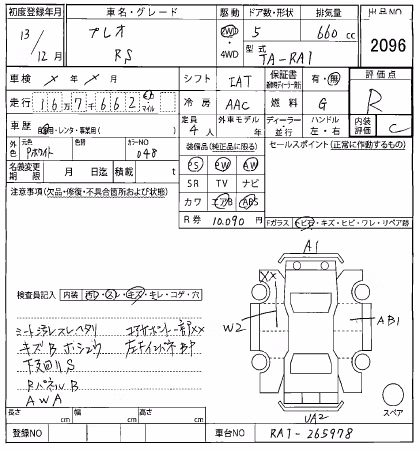 初度登録年月 車名・グレード 駆動 ドア数・形状 排気量 出品NO
13/12月 プレオ RS 2WD・4WD 5 660cc 2096
型式 TA-RA1
車検 × 年 × 月 シフト IAT 保証書 有・無 評価点
走行 167662 km マイル 冷房 AAC 燃料 G R
車歴 自家用・レンタ・事業用( ) 定員 4人 外車モデル 年 ディーラー・並行 ハンドル 左・右 内装評価 C
外色 元色 Pホワイト 色替 カラーNO 048 装備品(純正品に限る) セールスポイント(正常に作動するもの)
名義変更期限 月 日迄 積載 t PS PW AW
注意事項(欠品・修復・不具合箇所および状態) SR TV ナビ
カワ エアB ABS
R券 10.090円 Fガラス トビ石・キズ・ヒビ・ワレ・リペア跡
A1
XX
W2
AB1
UA2
スペア
検査員記入 内装 キズ・キレ・コゲ・穴
キズB ホシュウ
下回りS
RパネルB
AWA
長さ cm 幅 cm 高さ cm
登録NO 車台NO RA1-265978